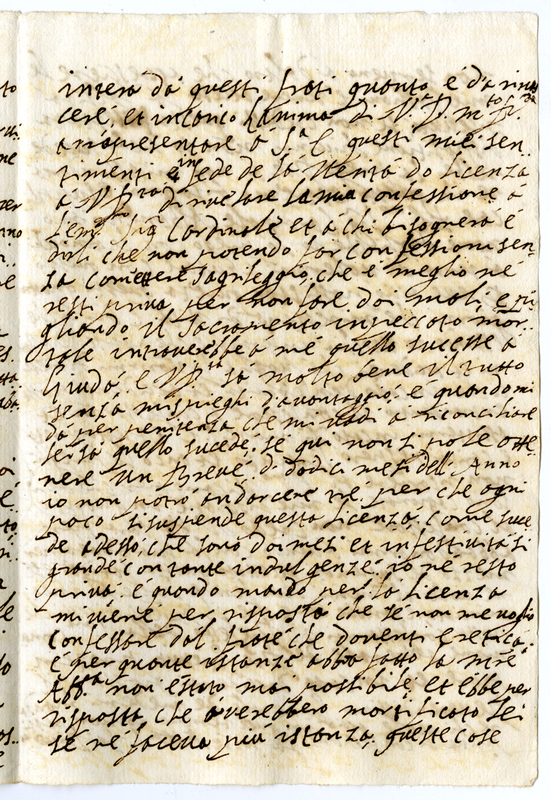 intera da questi frati quanto è da rin
cere, et incarico l'anima di V.ª P. m.to R.da
a rapresentare à S.ª E questi miei sen
timenti e in fede de la Verità do licenza
à V P.tà di rivelare la mia confessione à
l'em. Sig. Cardinale et a chi bisognerà é
dirli che non potendo far confessioni sen
za comettere sagrileggio, che é meglio né
resti priva per non fare doi mali e pi
gliando il Sacramento in peccato mor
tale intraverebbe à mé quello sucesse à
Giudá, e V P.tà sá molto bene il tutto
senza mi spieghi d'avantaggio, é quando mi
dá per penitenza che mi vadi a riconciliare
sensa quello sucede, se qui non si pole otte
nere Un Brevé di dodici mesi dell'Anno
io non potró andarcene vé, per che ogni
poco si suspende questa licenza, come suce
de adesso, che sono doi mesi et in festività sì
grande con tante indulgenze io ne resto
priva. é quando mando per la licenza
mi viene per risposta che se non me voglio
confessare dal frate che doventi eretica,
é per quante istanze abbia fatto la m.re
Abb.ª non é stato mai possibile, et ebbe per
risposta, che averebbero mortificato lei
se né faceva piu istanza, queste cose